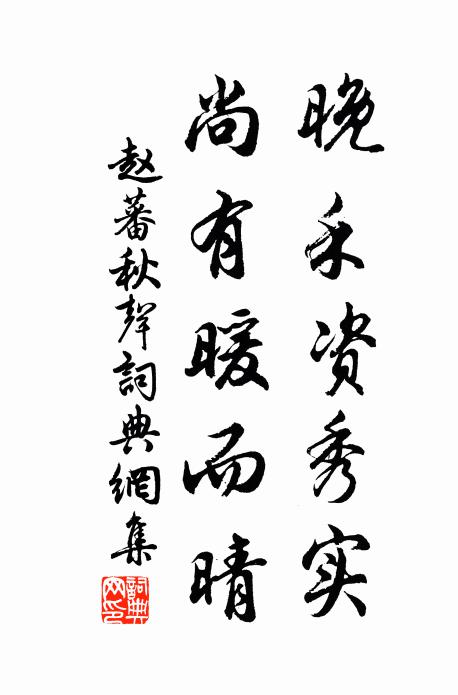 晚禾资秀实
尚有暖而晴
赵蕃秋聲詞典網集
詞典网印